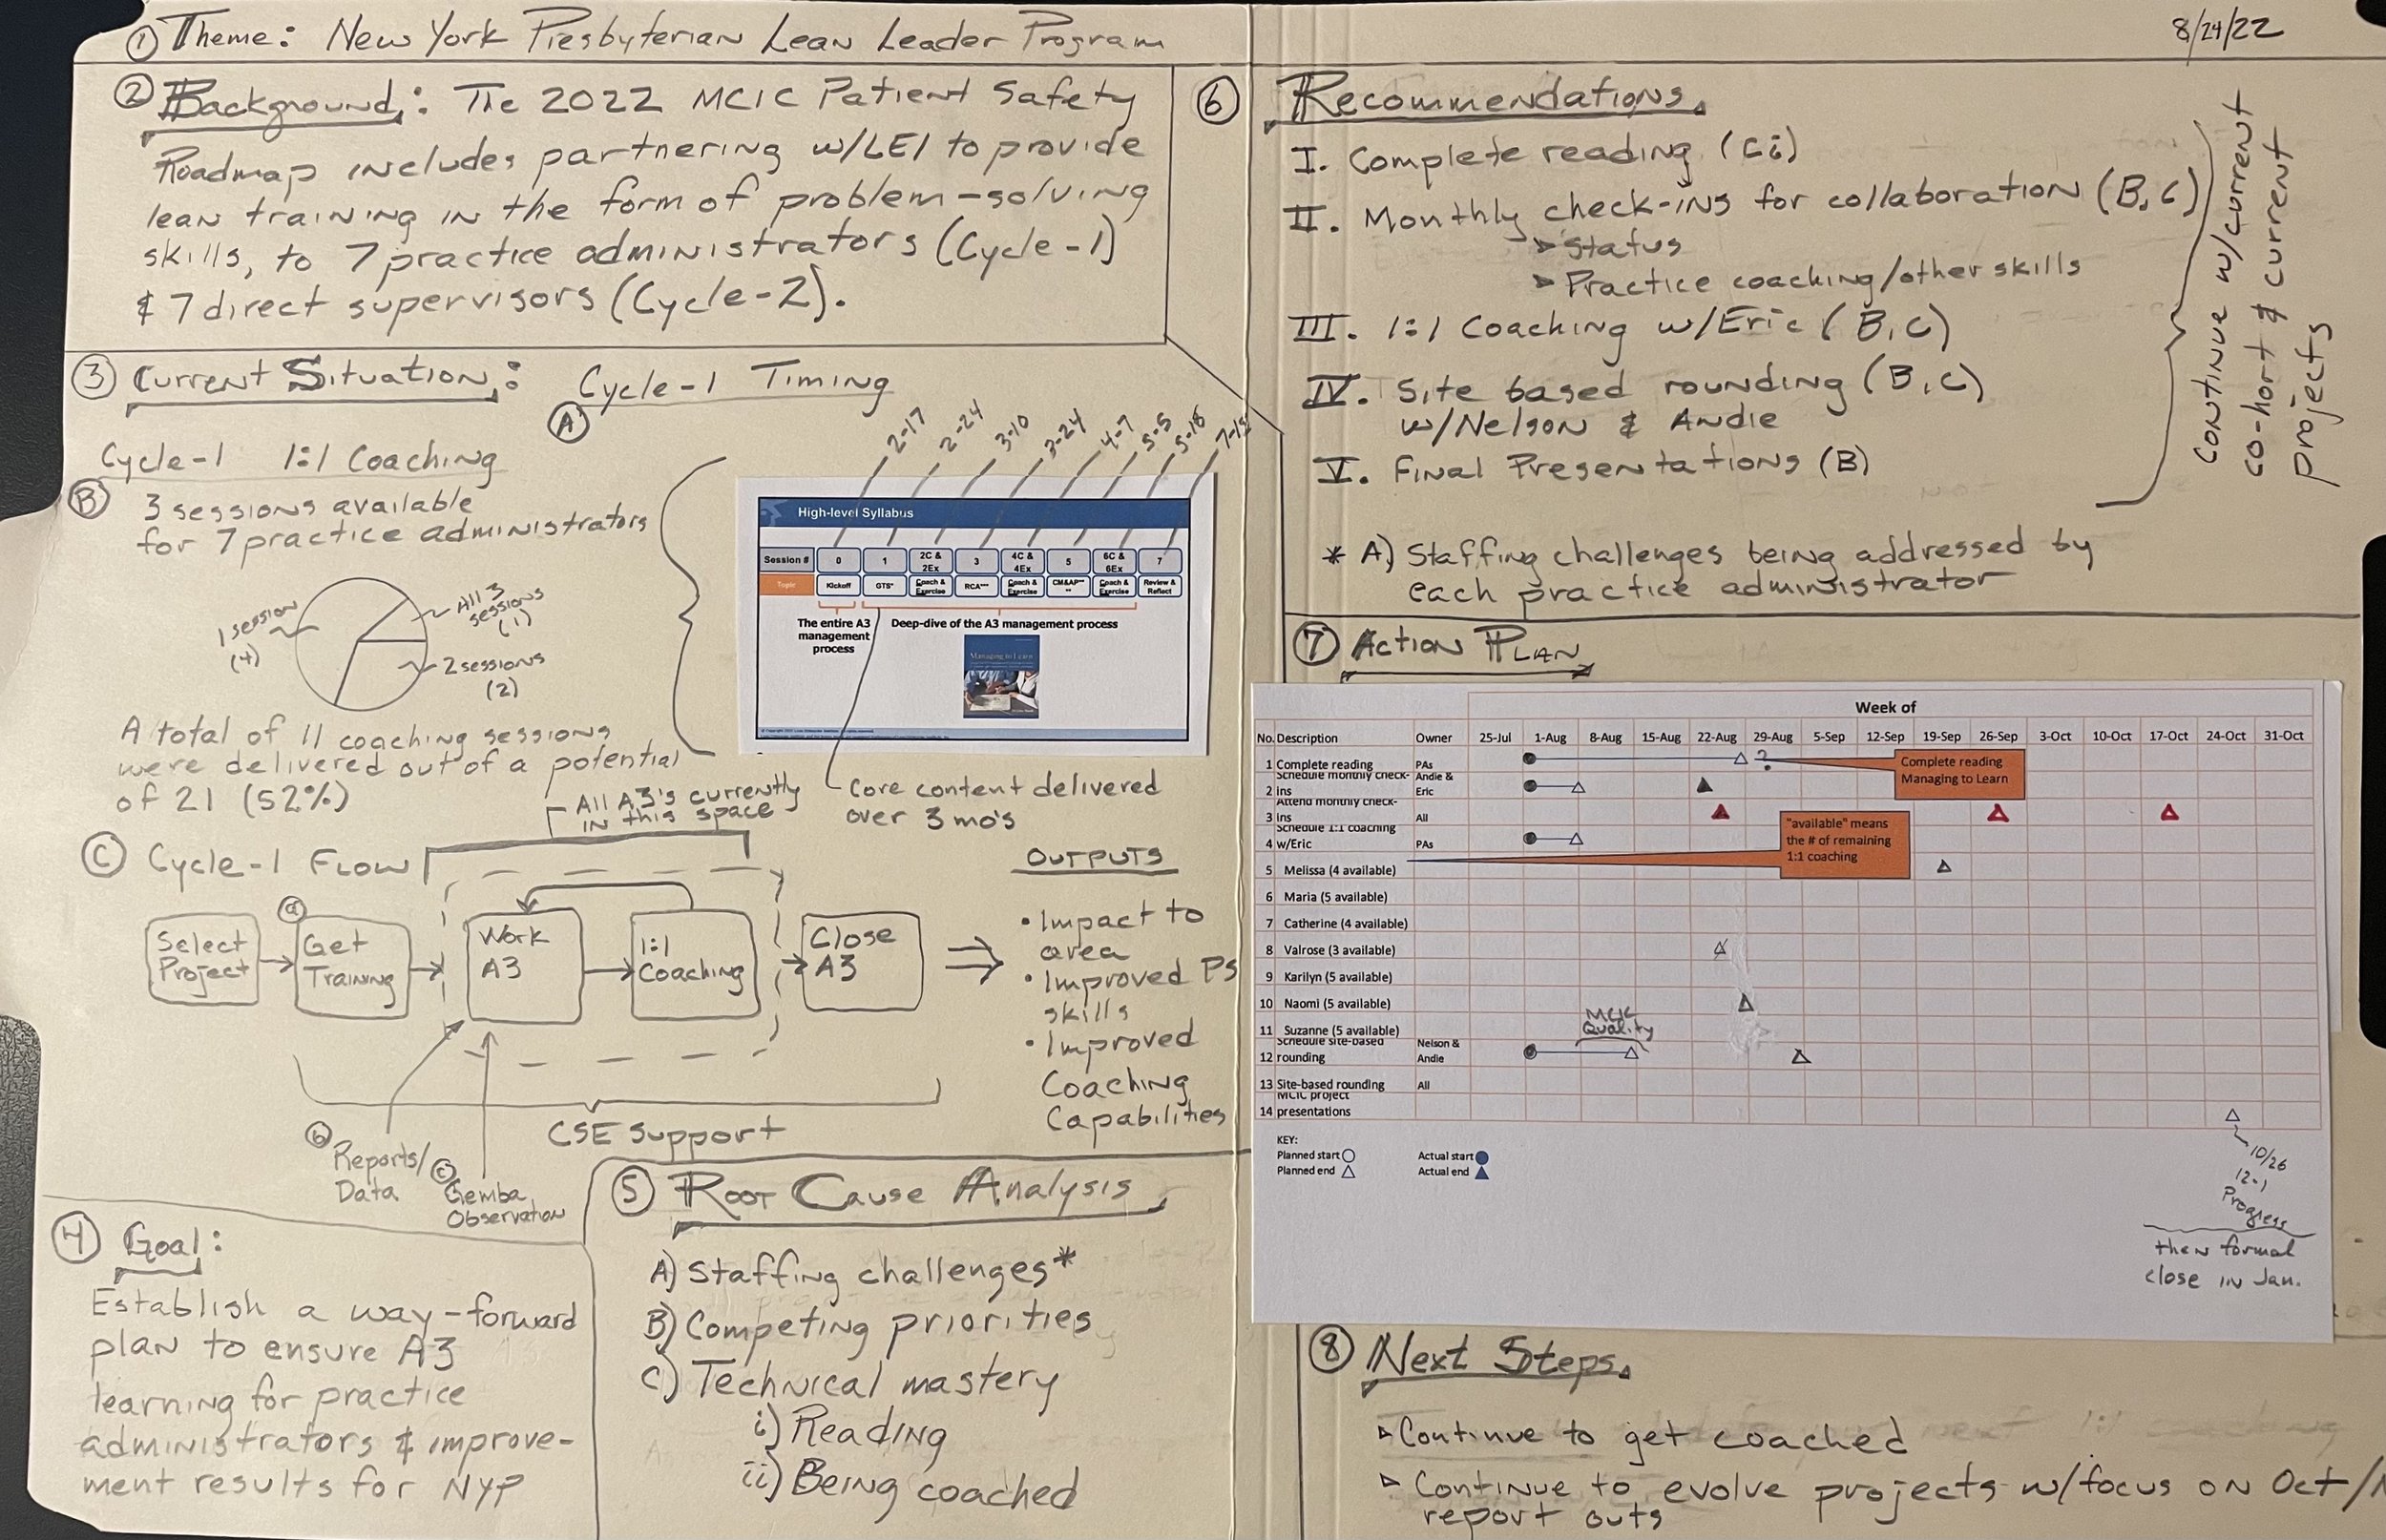 ① Theme: New York Presbyterian Lean Leader Program
8/24/22
② Background: The 2022 MCIC Patient Safety
Roadmap includes partnering w/LEI to provide
lean training in the form of problem-solving
skills, to 7 practice administrators (Cycle-1)
& 7 direct supervisors (Cycle-2).
③ Current Situation:
Cycle-1 Timing
A
2-17
2-24
3-10
3-24
4-7
5-5
5-18
Cycle-1 1:1 Coaching
B
3 sessions available
for 7 practice administrators
1 session
(4)
All 3
sessions
(1)
2 sessions
(2)
A total of 11 coaching sessions
were delivered out of a potential
of 21 (52%)
High-level Syllabus
Session # 0 1 2C & 2Ex 3 4C & 4Ex 5 6C & 6Ex 7
Topic Kickoff GTS* Coach & Exercise RCA*** Coach & Exercise CM&AP** ** Coach & Exercise Review & Reflect
The entire A3
management
process
Deep-dive of the A3 management process
Managing to Learn
Core content delivered
over 3 mo's
All A3's currently
in this space
C Cycle-1 Flow
Select
Project
a
Get
Training
Work
A3
1:1
Coaching
Close
A3
Outputs
• Impact to
area
• Improved PS
skills
• Improved
Coaching
Capabilities
CSE Support
b Reports/
Data
c Gemba
Observation
4 Goal:
Establish a way-forward
plan to ensure A3
learning for practice
administrators & improve-
ment results for NYP
⑤ Root Cause Analysis
A) Staffing challenges*
B) Competing priorities
C) Technical mastery
i) Reading
ii) Being coached
⑥ Recommendations
I. Complete reading (Ci)
II. Monthly check-ins for collaboration (B, C)
▹ Status
▹ Practice coaching/other skills
III. 1:1 Coaching w/Eric (B, C)
IV. Site based rounding (B, C)
w/Nelson & Andie
V. Final Presentations (B)
Continue w/current
co-hort & current
projects
* A) Staffing challenges being addressed by
each practice administrator
⑦ Action Plan
Week of
No. Description Owner 25-Jul 1-Aug 8-Aug 15-Aug 22-Aug 29-Aug 5-Sep 12-Sep 19-Sep 26-Sep 3-Oct 10-Oct 17-Oct 24-Oct 31-Oct
1 Complete reading PAs
?
Complete reading
Managing to Learn
Schedule monthly check-
2 ins
Andie &
Eric
Attend monthly check-
3 ins All
"available" means
the # of remaining
1:1 coaching
Schedule 1:1 coaching
4 w/Eric PAs
5 Melissa (4 available)
6 Maria (5 available)
7 Catherine (4 available)
8 Valrose (3 available)
9 Karilyn (5 available)
10 Naomi (5 available)
MCIC
Quality
11 Suzanne (5 available)
Schedule site-based
12 rounding
Nelson &
Andie
13 Site-based rounding All
MCIC project
14 presentations
KEY:
Planned start
Actual start
Planned end
Actual end
10/26
12-1
Progress
then formal
close in Jan.
⑧ Next Steps
▹ Continue to get coached
▹ Continue to evolve projects w/focus on Oct/
report outs